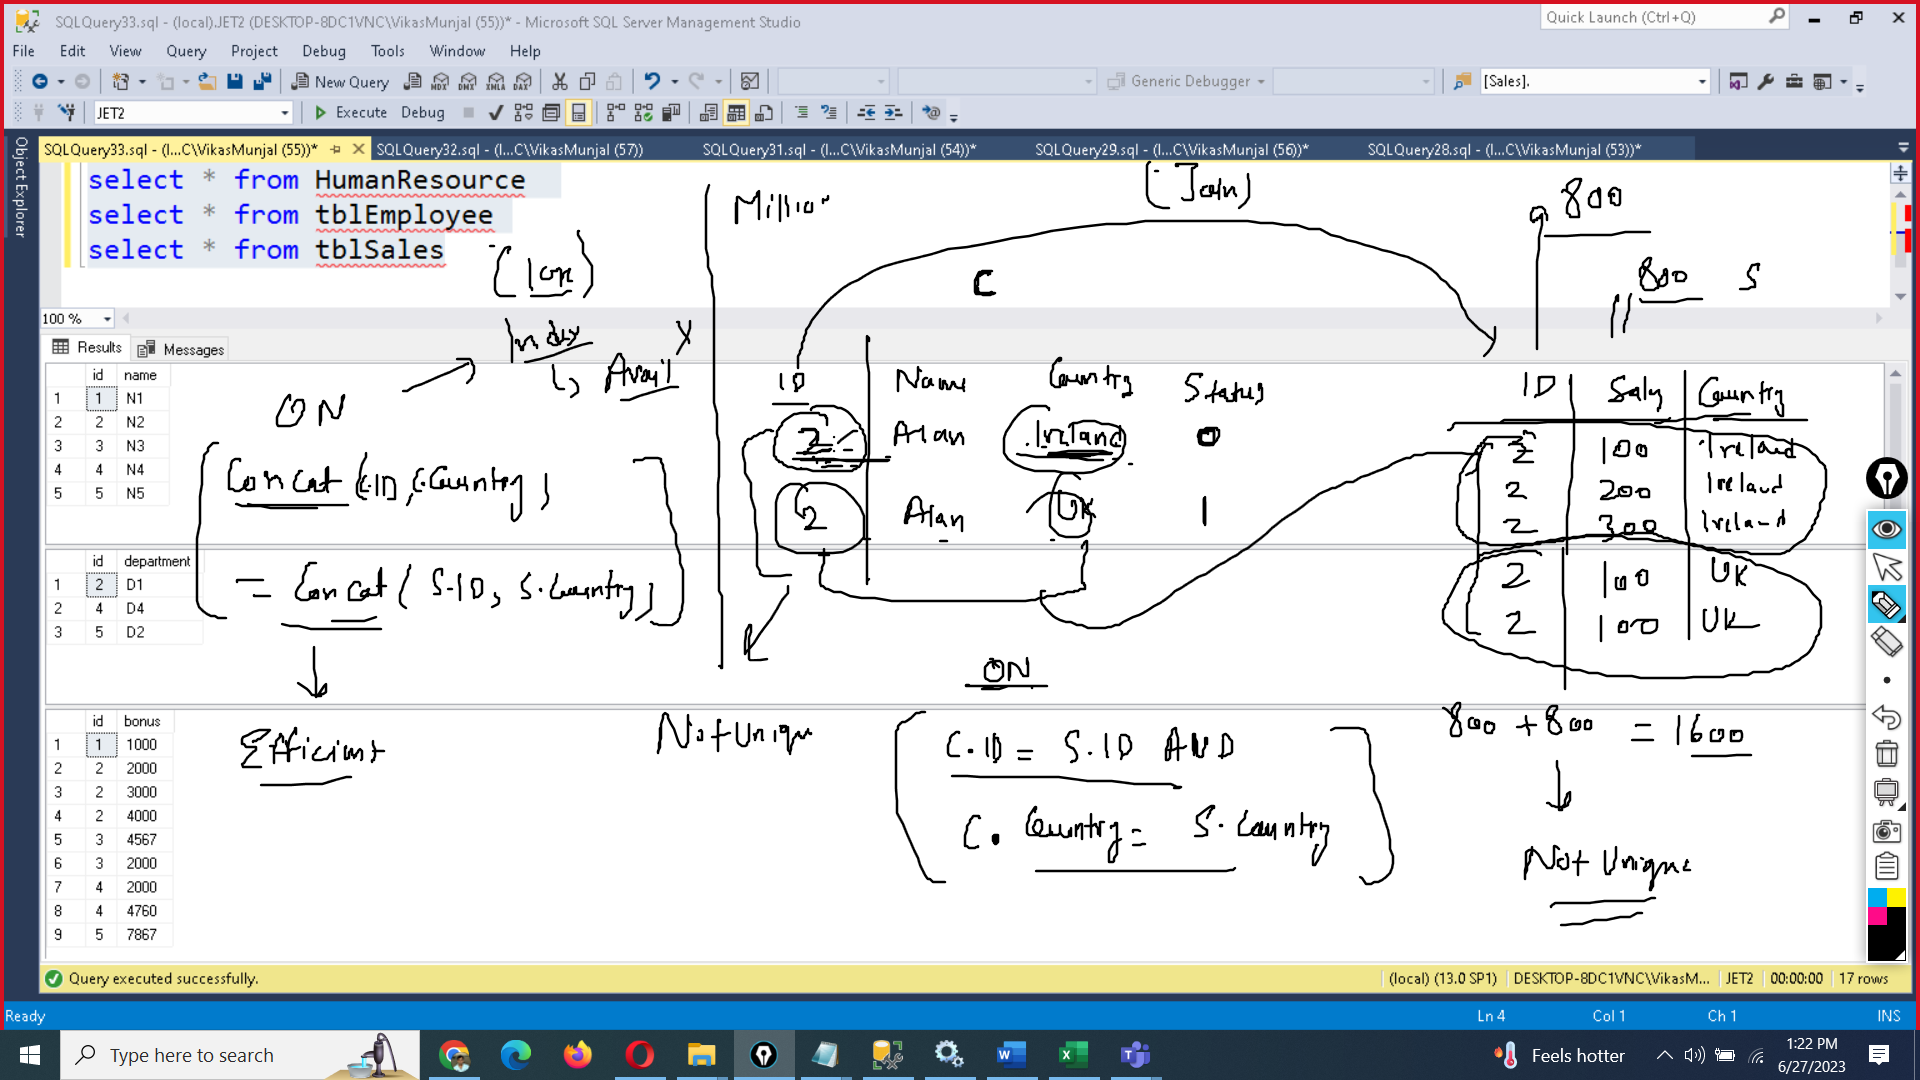 SQLQuery33.sql - (local).JET2 (DESKTOP-8DC1VNC\VikasMunjal (55))* - Microsoft SQL Server Management Studio
Quick Launch (Ctrl+Q)
File Edit View Query Project Debug Tools Window Help
New Query MDX DMX XMLA DAX Generic Debugger [Sales].
JET2 Execute Debug
SQLQuery33.sql - (l...C\VikasMunjal (55))* SQLQuery32.sql - (l...C\VikasMunjal (57)) SQLQuery31.sql - (l...C\VikasMunjal (54))* SQLQuery29.sql - (l...C\VikasMunjal (56))* SQLQuery28.sql - (l...C\VikasMunjal (53))*
Object Explorer
select * from HumanResource
select * from tblEmployee
select * from tblSales
Million
(Join)
800
800 S
C
Index X
Avail
100 %
Results Messages
id name
1 1 N1
2 2 N2
3 3 N3
4 4 N4
5 5 N5
id department
1 2 D1
2 4 D4
3 5 D2
id bonus
1 1 1000
2 2 2000
3 2 3000
4 2 4000
5 3 4567
6 3 2000
7 4 2000
8 4 4760
9 5 7867
ON
Concat (C.ID, C.Country)
= Concat (S.ID, S.Country)
Efficient
ID Name Country Status
2 Alan Ireland 0
2 Alan UK 1
ID Saly Country
2 100 Ireland
2 200 Ireland
2 300 Ireland
2 100 UK
2 100 UK
ON
Not Unique
C.ID = S.ID AND
C.Country = S.Country
800 + 800 = 1600
Not Unique
Query executed successfully. (local) (13.0 SP1) DESKTOP-8DC1VNC\VikasM... JET2 00:00:00 17 rows
Ready Ln 4 Col 1 Ch 1 INS
Type here to search
Feels hotter
1:22 PM
6/27/2023